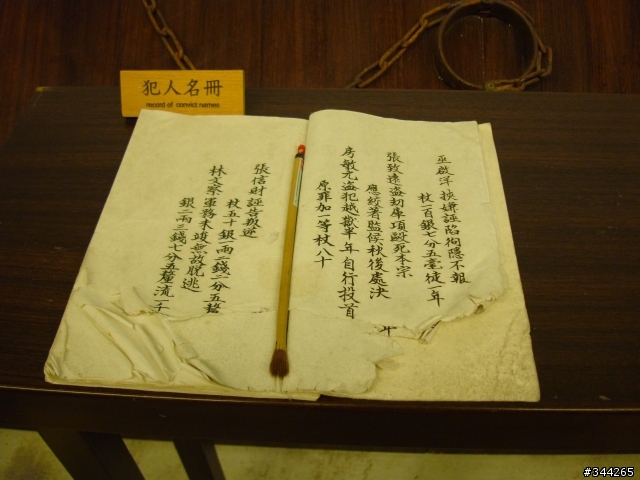 犯人名冊
record of convict names
巫啟洋 挾嫌誣陷徇隱不報
杖一百銀七分五毫徒一年
張致遠盜劫庫項毆死本宗
應絞著監候秋後處決
房敏元盜犯越獄半年自行投首
原罪加一等杖八十
張信財誣告叛逆
杖五十銀一兩二錢二分五釐
林文案軍務未竣無故脫逃
銀二兩三錢七分五釐流一千
#344265